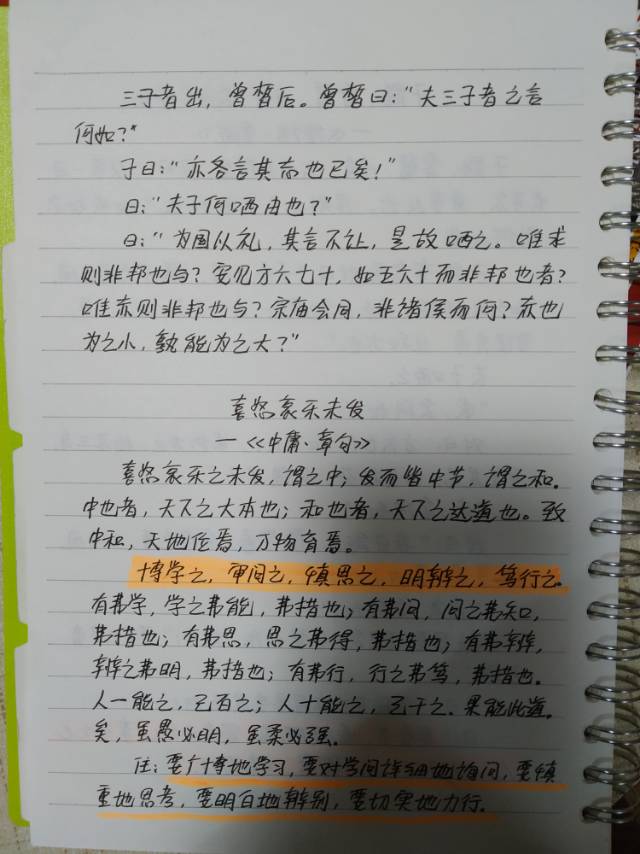 三子者出，曾皙后。曾皙曰：“夫三子者之言
何如？”
子曰：“亦各言其志也已矣！”
曰：“夫子何哂由也？”
曰：“为国以礼，其言不让，是故哂之。唯求
则非邦也与？安见方六七十，如五六十而非邦也者？
唯赤则非邦也与？宗庙会同，非诸侯而何？赤也
为之小，孰能为之大？”
喜怒哀乐未发
—《中庸·章句》
喜怒哀乐之未发，谓之中；发而皆中节，谓之和。
中也者，天下之大本也；和也者，天下之达道也。致
中和，天地位焉，万物育焉。
博学之，审问之，慎思之，明辨之，笃行之。
有弗学，学之弗能，弗措也；有弗问，问之弗知，
弗措也；有弗思，思之弗得，弗措也；有弗辨，
辨之弗明，弗措也；有弗行，行之弗笃，弗措也。
人一能之，己百之；人十能之，己千之。果能此道
矣，虽愚必明，虽柔必强。
注：要广博地学习，要对学问详细地询问，要慎
重地思考，要明白地辨别，要切实地力行。